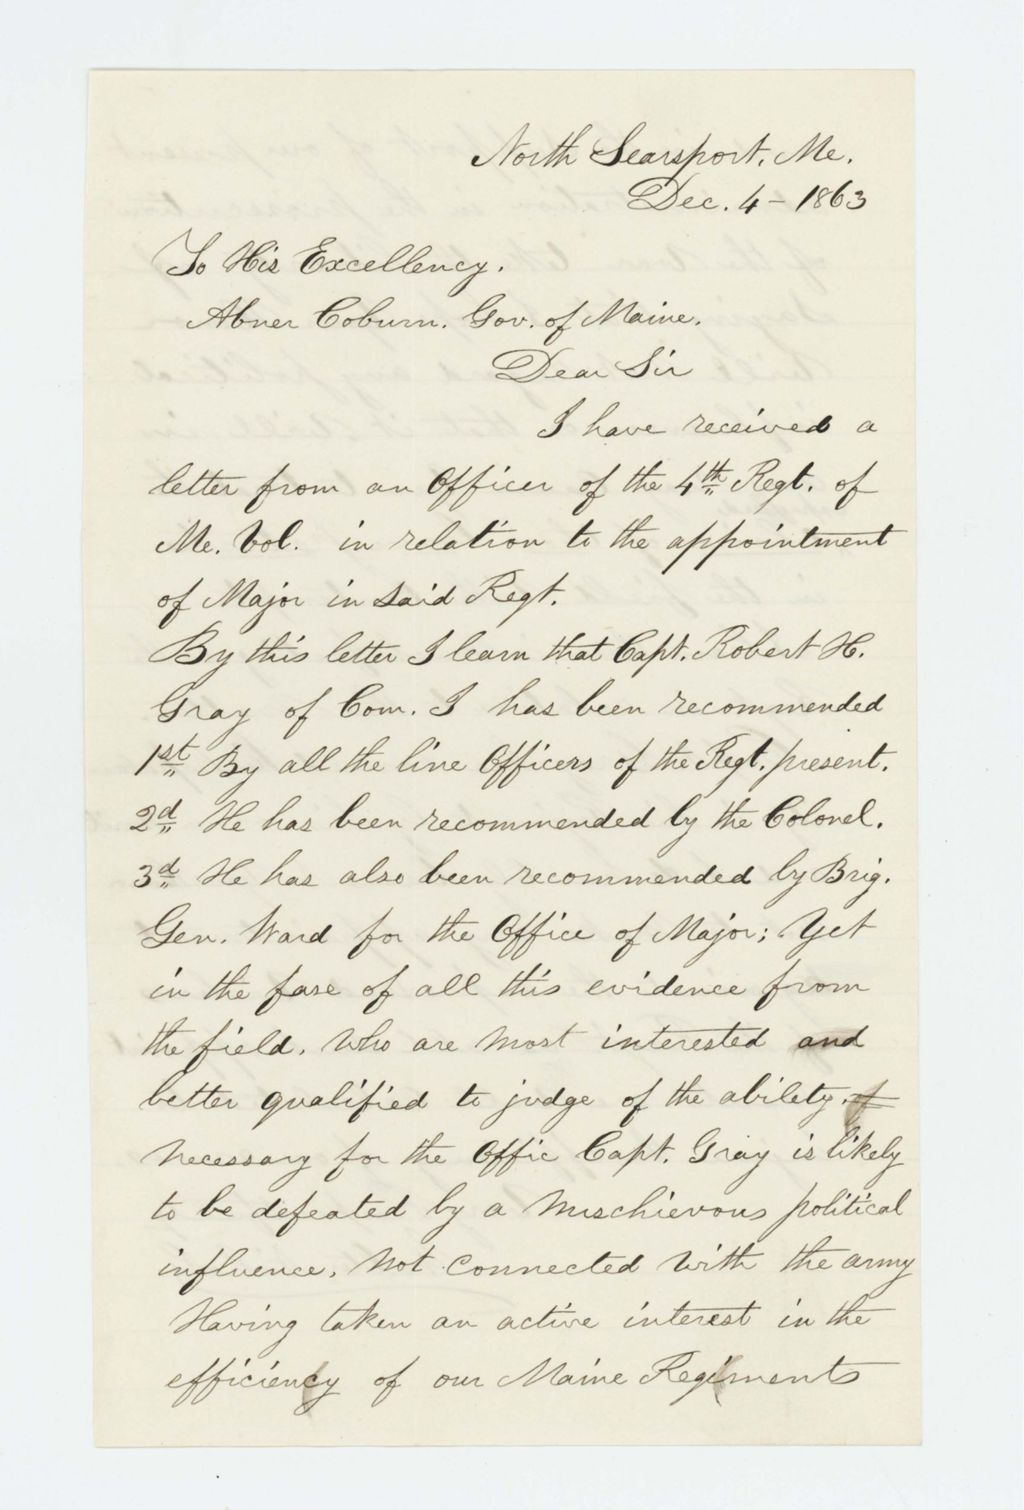 North Searsport, Me.
Dec. 4 - 1863
To His Excellency.
Abner Coburn. Gov. of Maine.
Dear Sir
I have received a
letter from an Officer of the 4th Regt. of
Me. Vol. in relation to the appointment
of Major in said Regt.
By this letter I learn that Capt. Robert H.
Gray of Com. I has been recommended
1st By all the line Officers of the Regt. present.
2d He has been recommended by the Colonel.
3d He has also been recommended by Brig.
Gen. Ward for the Office of Major; Yet
in the fase of all this evidence from
the field, who are most interested and
better qualified to judge of the ability
necessary for the Offic Capt. Gray is likely
to be defeated by a mischievous political
influence, not connected with the army
Having taken an active interest in the
efficiency of our Maine Regiments